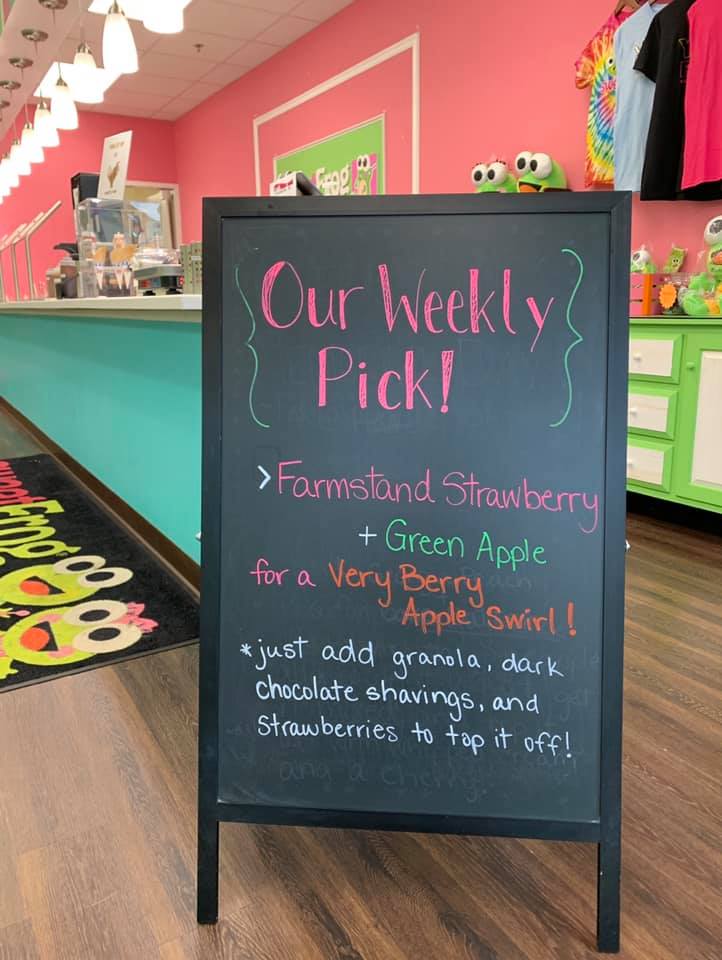 Frog
Our Weekly
Pick!
> Farmstand Strawberry
+ Green Apple
for a Very Berry
Apple Swirl!
*just add granola, dark
chocolate shavings, and
strawberries to top it off!
and a cherry
sweet
Frog